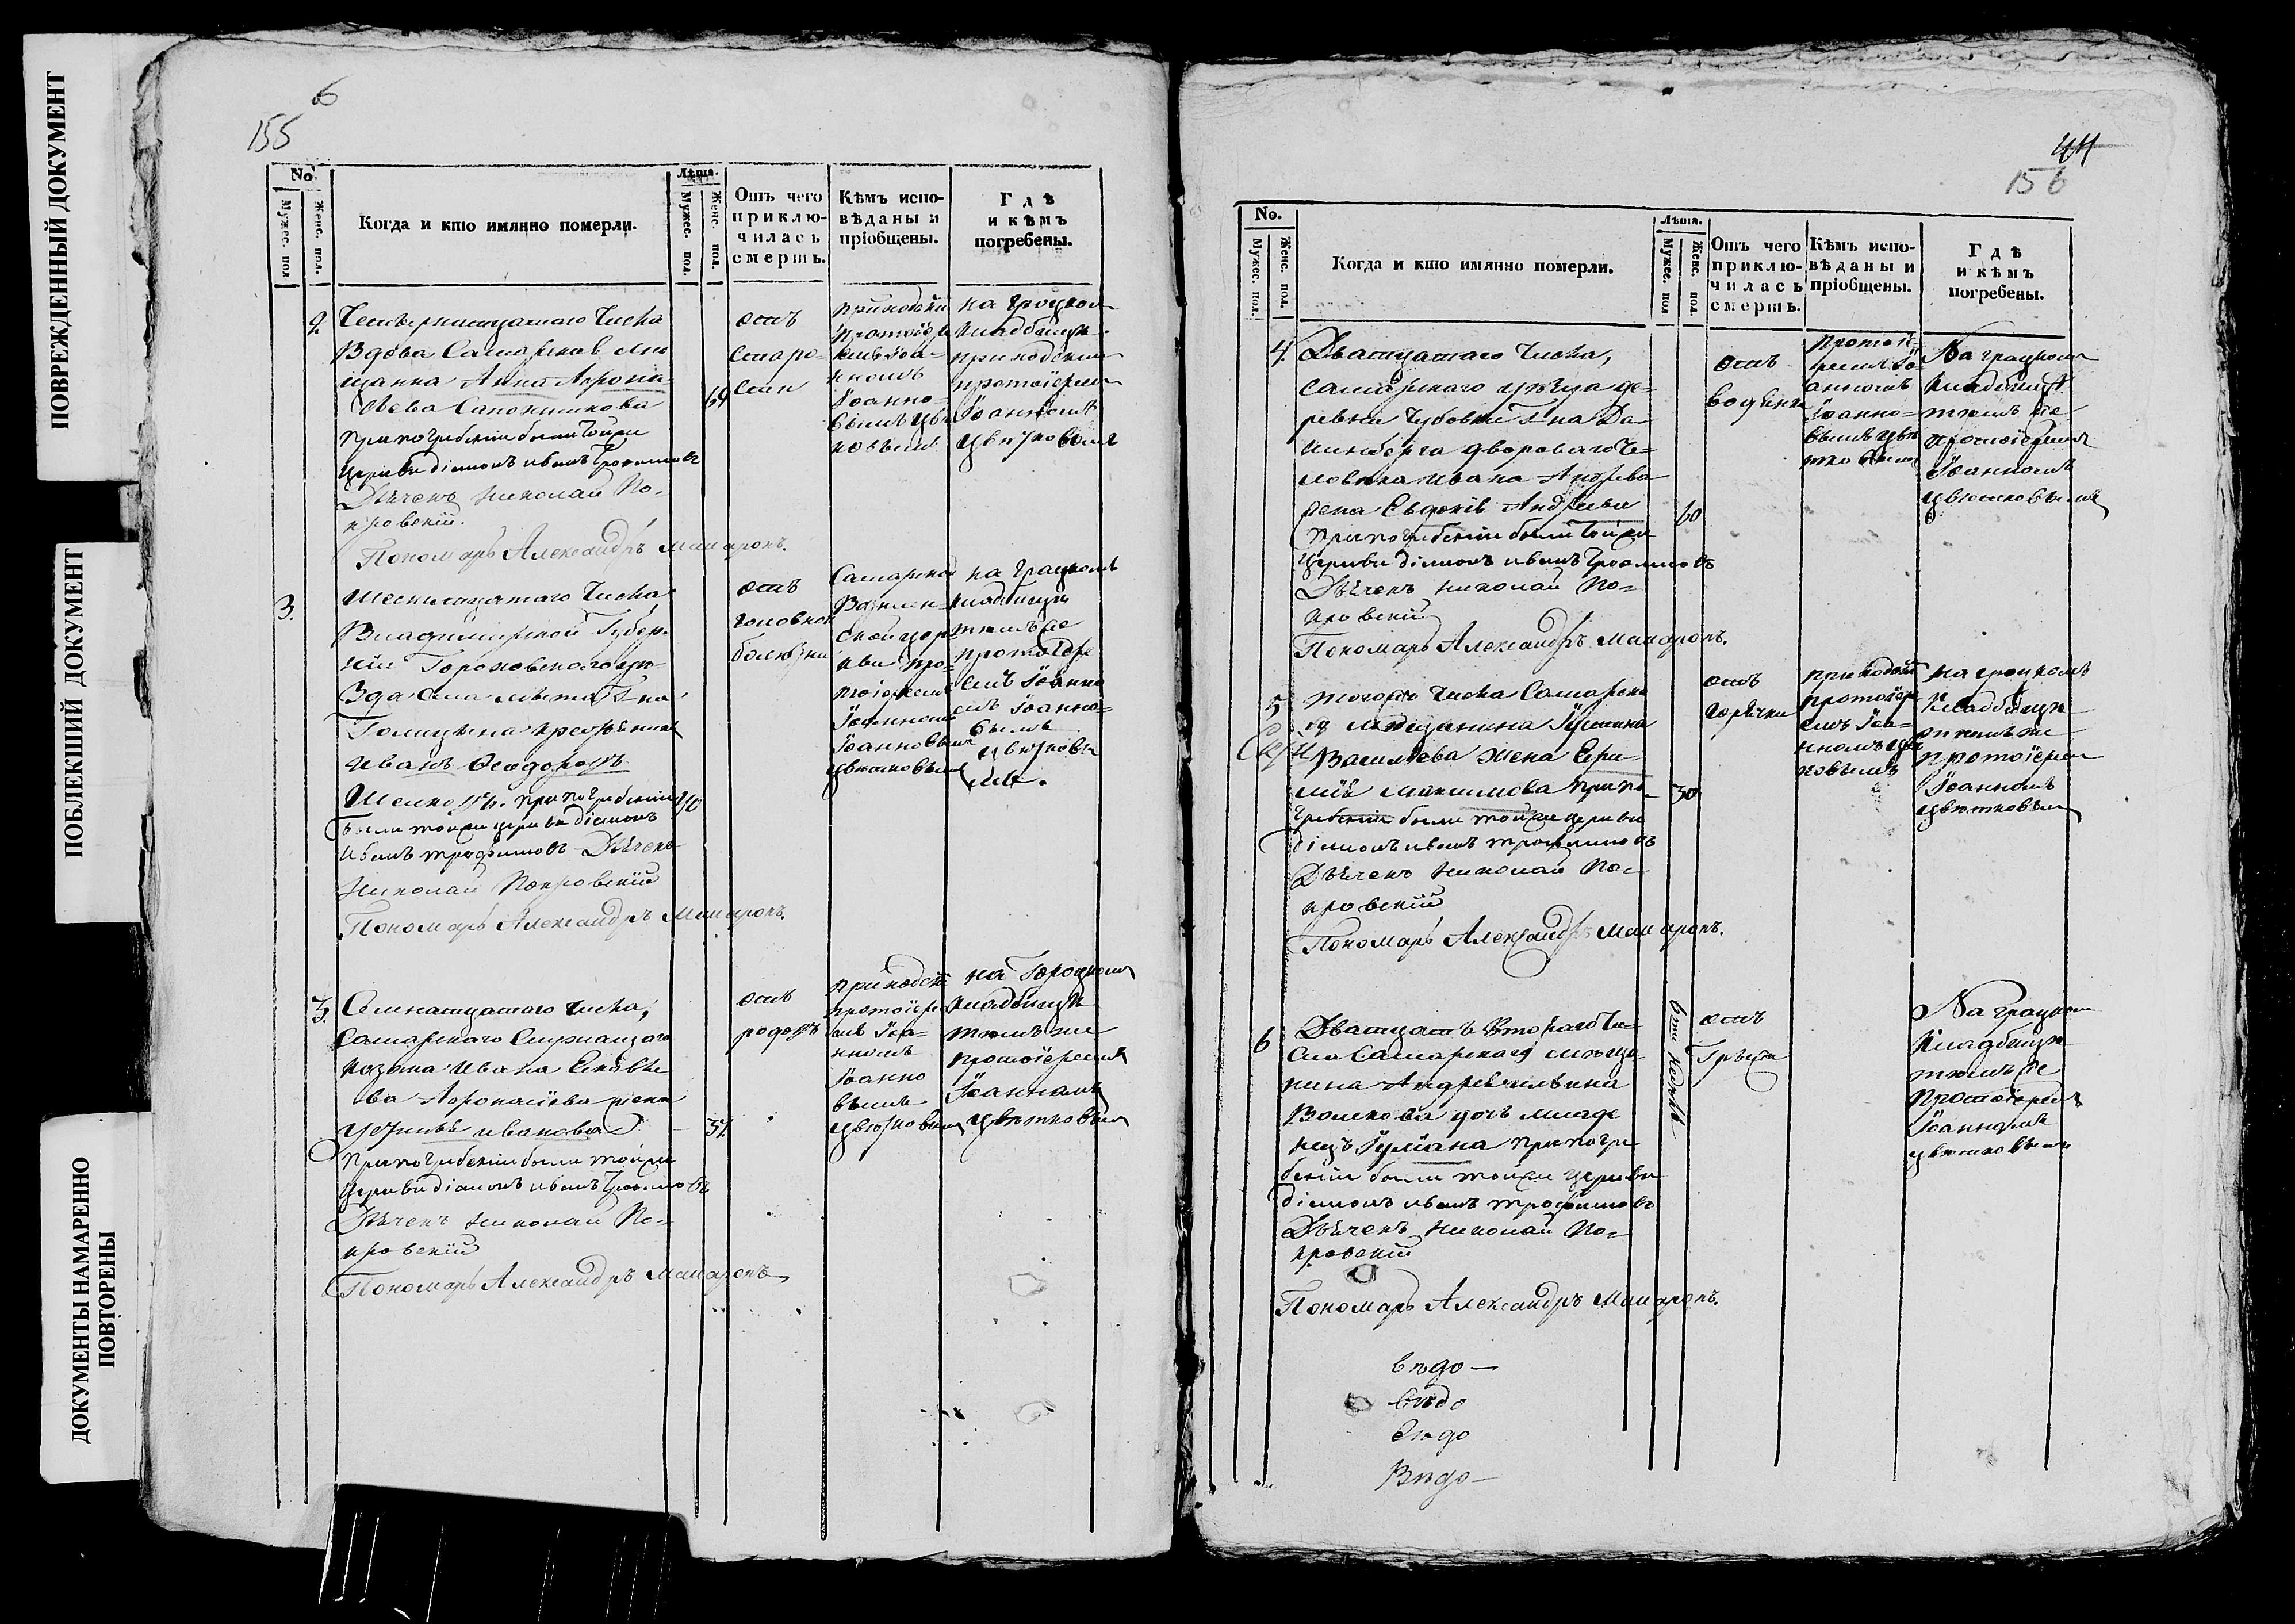 ПОВРЕЖДЕННЫЙ ДОКУМЕНТ
ПОБЛЕКШИЙ ДОКУМЕНТ
ДОКУМЕНТЫ НАМАРЕННО
ПОВТОРЕНЫ
6
155
No
Мужес. пол
Женс. пол.
Когда и кто имянно померли.
Лѣта.
Мужес. пол.
Женс. пол.
Отъ чего
приклю-
чилась
смерть.
Кѣмъ испо-
вѣданы и
пріобщены.
Гдѣ
и кѣмъ
погребены.
2.
Четырнатцатаго Числа
Вдова Самарская мѣ
щанка Анна Афона
сьева Сапожникова
при погребеніи были тойже
Церкви діаконъ Иванъ Трофимовъ
Дьячекъ Николай По-
кровскій.
Пономарь Александръ Макаровъ.
69
отъ
старо-
сти
приходски
протоіере
емъ Іоа-
нномъ
Іоанно-
вымъ Цвѣ
ковымъ
на градском
кладбищѣ
приходскимъ
протоіереем
Іоанномъ
Цвѣтковымъ
3.
Шеснатцатаго Числа
Владимирской Губер-
ніи Гороховскаго уѣ-
зда села
Голицына крестьянинъ
Иванъ Феодоровъ
при погребеніи
были тойже церкви діаконъ
Иванъ Трофимовъ Дьячекъ
Николай Покровскій
Пономарь Александръ Макаровъ.
отъ
головной
болезни
Самарской
Вознен-
ской цер
кви про-
тоіереем
Іоанномъ
Іоанновым
Цвѣтковым
на градскомъ
кладбищѣ
тѣмъ же
протоіере
емъ Іоанно
мъ Іоанно-
вымъ
Цвѣтковы
мъ.
3.
Семнатцатаго числа,
Самарского
казака Ивана
ва Афонасіева жена
Иванова
при погребеніи были тойже
Церкви діаконъ Иванъ Трофимовъ
Дьячекъ Николай По-
кровскій
Пономарь Александръ Макаровъ
отъ
родовъ
приходск
протоіере
мъ Іоа-
нномъ
Іоанно
вымъ
Цвѣтковым
на Городском
кладбищѣ
тѣмъ же
протоіереемъ
Іоанномъ
Цвѣтковым
44
156
No.
Мужес. пол.
Женс. пол
Когда и кто имянно померли.
Лѣта.
Мужес. пол
Женс. пол.
Отъ чего
приклю-
чилась
смерть.
Кѣмъ испо-
вѣданы и
пріобщены.
Гдѣ
и кѣмъ
погребены.
4.
Дватцатаго Числа,
Самарского уѣзда де-
ревни Чубовки Г-на Да-
ненберга двороваго Че-
ловека Ивана Андрева
жена Евдокія Андреева
при погребеніи были тойже
Церкви діаконъ Иванъ Трофимовъ
Дьячекъ Николай По-
кровскій
Пономарь Александръ Макаровъ.
60
отъ
водянки
протоіе-
реемъ Іо
анномъ
Іоанно-
вымъ Цвѣ
тковымъ
На градском
кладбищѣ
тѣмъ же
протоіереем
Іоанномъ
Цвѣтковымъ
5
тогожъ Числа Самарска
го мѣщанина Іустина
Васильева жена
Максимова при по-
гребеніи были тойже церкви
діаконъ Иванъ Трофимовъ
Дьячекъ Николай По-
кровскій
Пономарь Александръ Макаровъ.
30
отъ
горячки
приходски
протоіере
емъ Іоа-
нномъ Цвѣ
ковымъ
на градскомъ
кладбищѣ
тѣмъ же
протоіерем
Іоанномъ
Цвѣтковым
6
Дватцать Втораго Чи-
сла Самарского мѣща
нина Андрея Ильина
Волкова дочь младе
нецъ Іуліана при погре
беніи были тойже церкви
діаконъ Иванъ Трофимовъ
Дьячекъ Николай По-
кровскій
Пономарь Александръ Макаровъ.
6ти недель
отъ
Грыжи
На градском
кладбищѣ
тѣмъ же
Протоіереем
Іоанномъ
Цвѣтковымъ